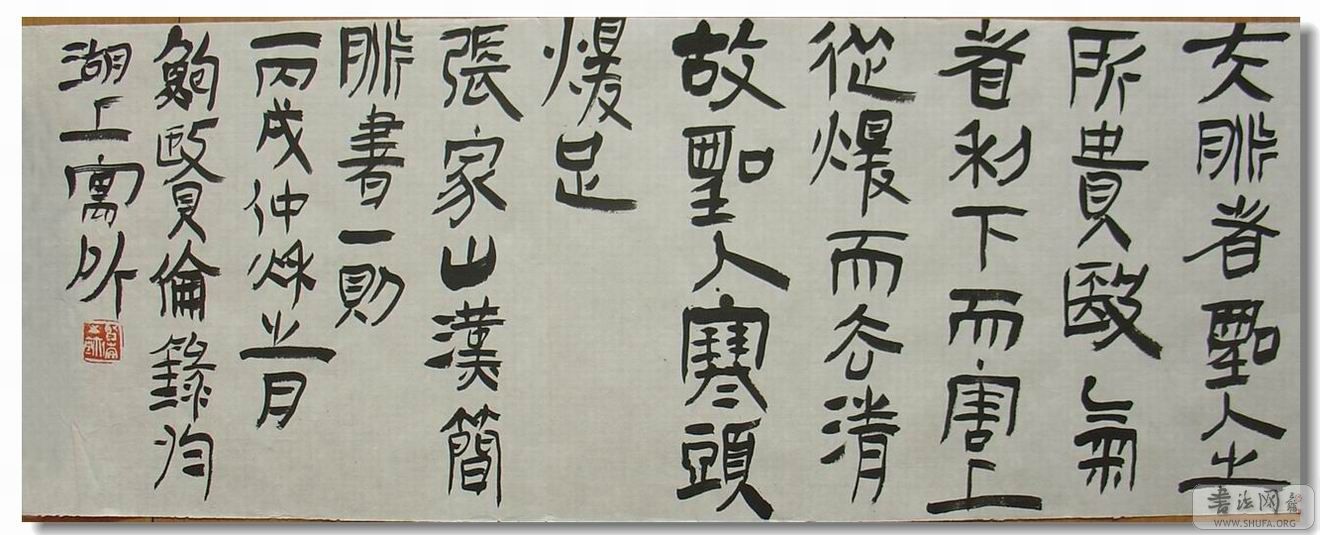 夫脈者聖人之
所貴殹氣
者利下而害上
從煖而去清
故聖人寒頭
煖足
張家山漢簡
脈書一則
丙戌仲秋之月
鮑賢倫錄於
湖上寓所
书法网
WWW.SHUFA.ORG